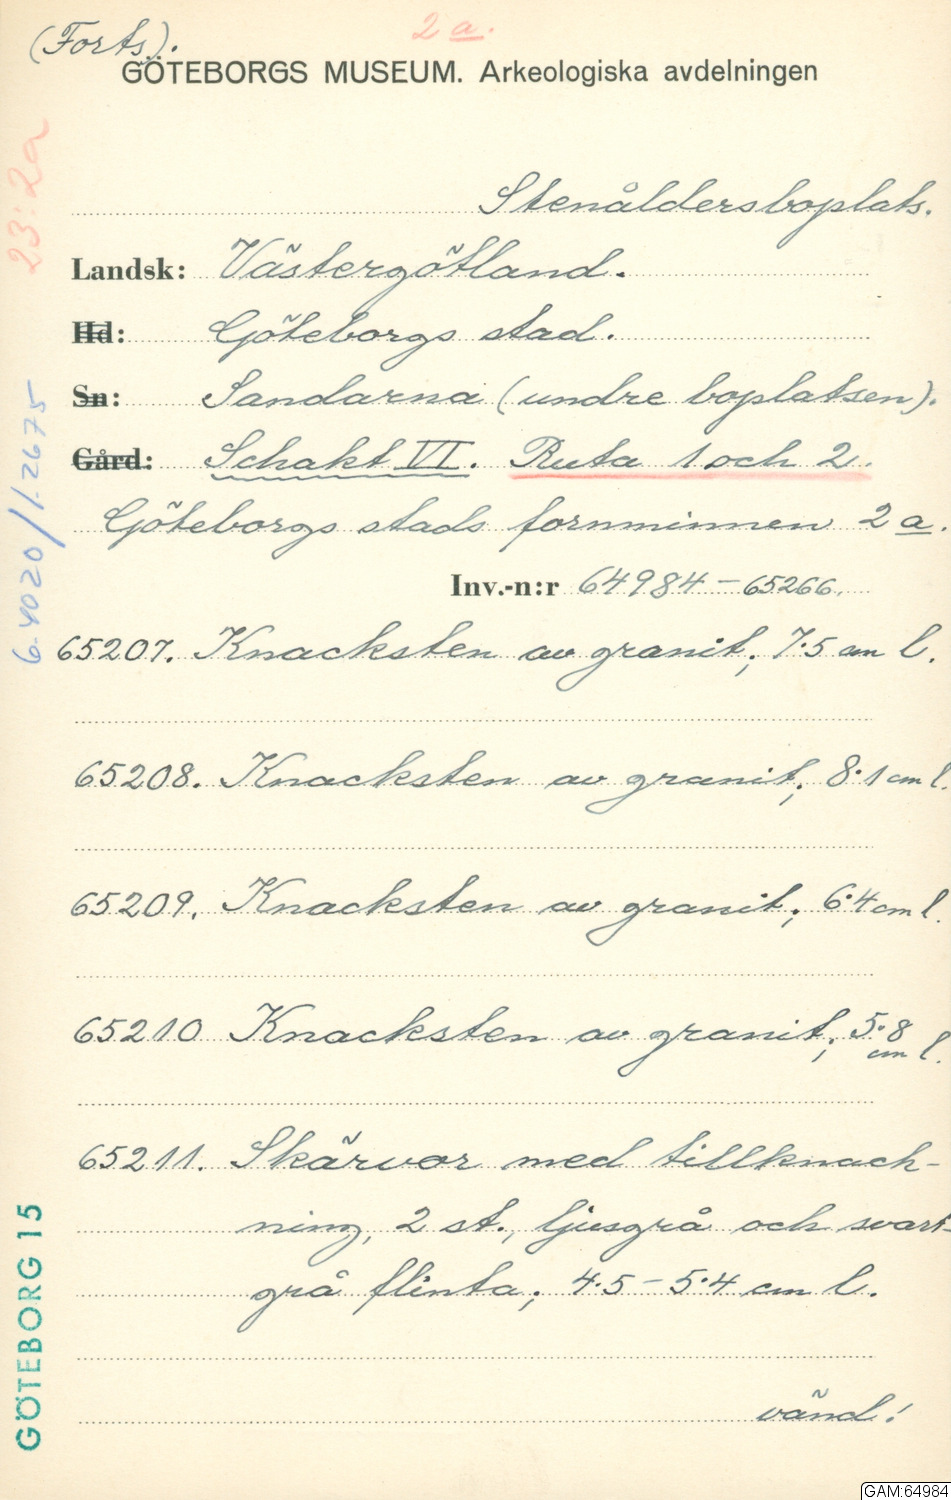 (Forts).
2 a.
GÖTEBORGS MUSEUM. Arkeologiska avdelningen
23:2a
Stenåldersboplats.
Landsk: Västergötland.
Hd: Göteborgs stad.
Sn: Sandarna (undre boplatsen).
Gård: Schakt VI. Ruta 1 och 2.
Göteborgs stads fornminnen 2 a.
Inv.-n:r 64984–65266.
6.4020/1.2675
65207. Knacksten av granit; 7.5 cm l.
65208. Knacksten av granit; 8.1 cm l.
65209. Knacksten av granit; 6.4 cm l.
65210 Knacksten av granit; 5.8
cm l.
65211. Skärvor med tillknack-
ning, 2 st., ljusgrå och svart-
grå flinta; 4.5–5.4 cm l.
vänd!
GÖTEBORG 15
GAM:64984